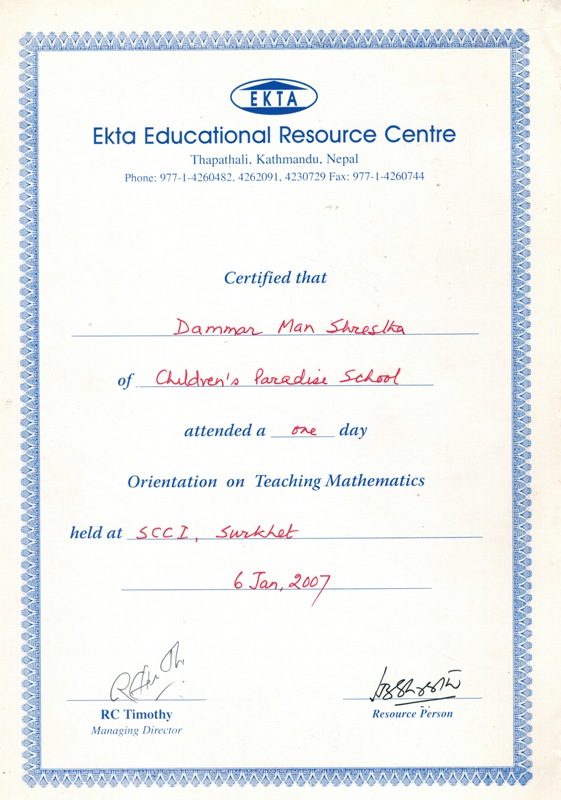 EKTA
Ekta Educational Resource Centre
Thapathali, Kathmandu, Nepal
Phone: 977-1-4260482, 4262091, 4230729 Fax: 977-1-4260744
Certified that
Dammar Man Shrestha
of Children's Paradise School
attended a one day
Orientation on Teaching Mathematics
held at SCCI, Surkhet
6 Jan, 2007
RC Timothy
Managing Director
Resource Person